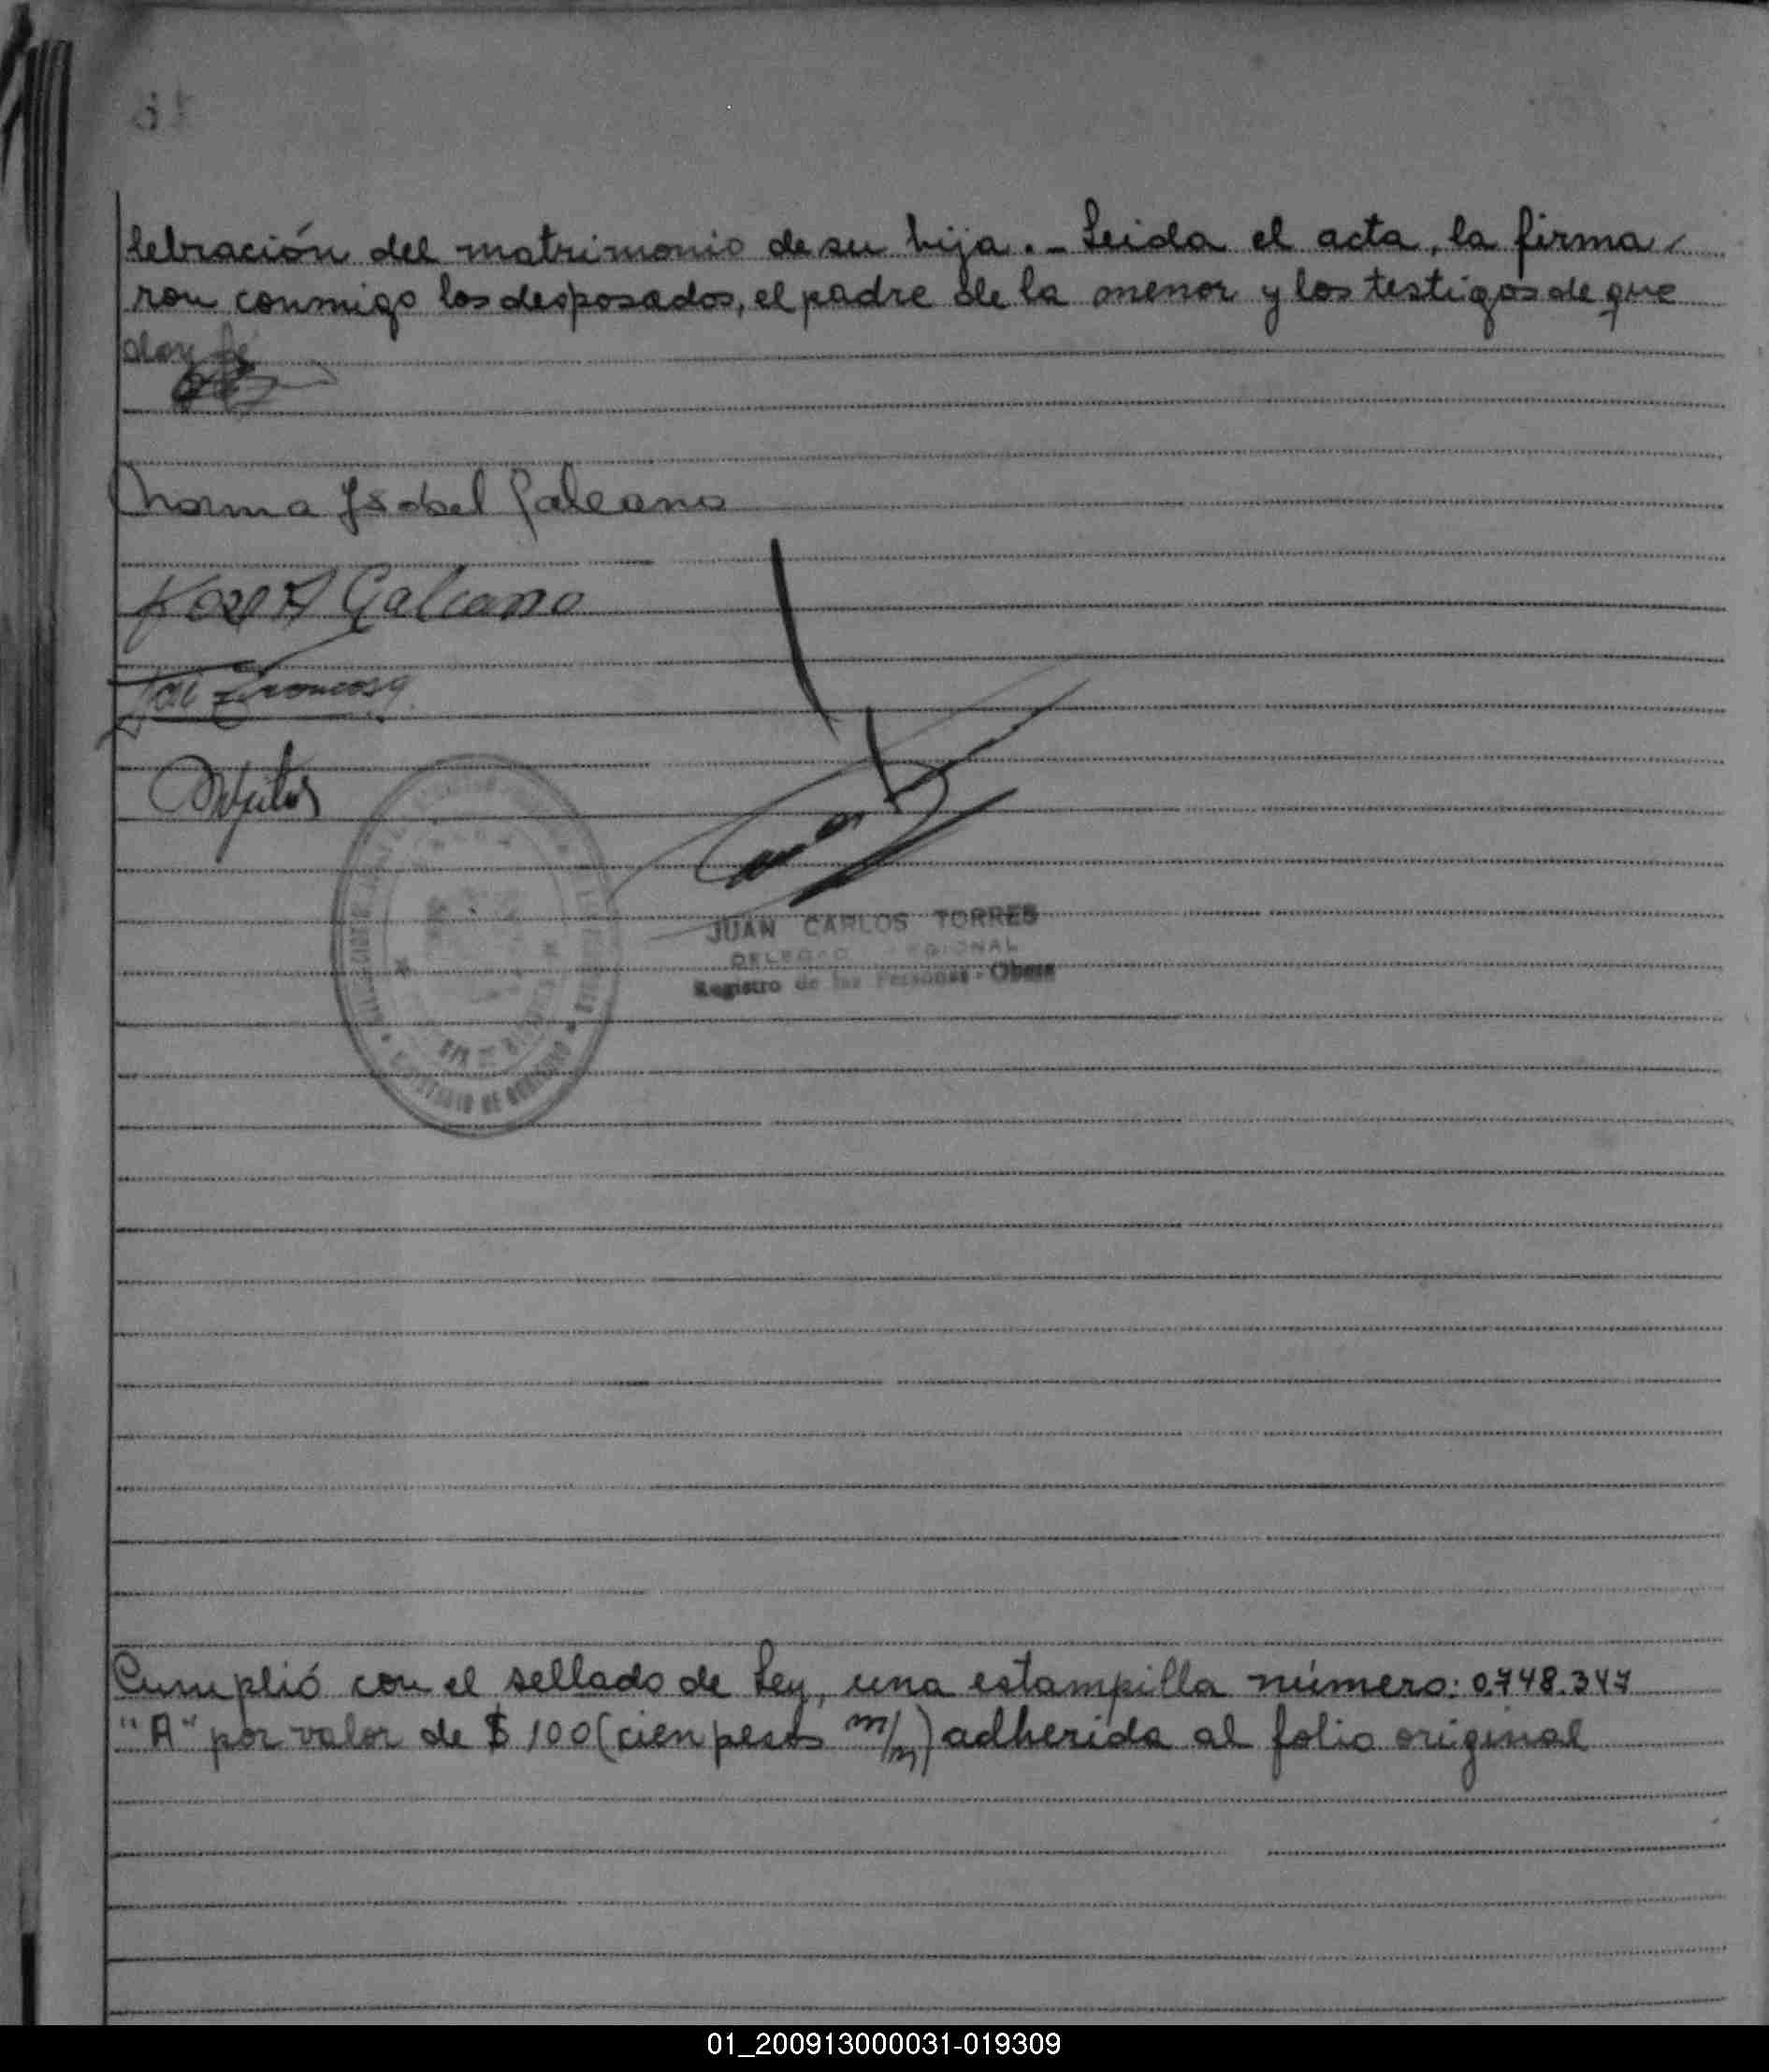 lebración del matrimonio de su hija. - Leida el acta, la firma-
ron conmigo los desposados, el padre de la menor y los testigos de que
doy fe
Norma Ysabel Galeano
José A Galeano
JUAN CARLOS TORRES
DELEGADO REGIONAL
Registro de las Personas - Obera
Cumplió con el sellado de Ley, una estampilla número: 0.748.347
"A" por valor de $ 100 (cien pesos m/n) adherida al folio original
01_200913000031-019309